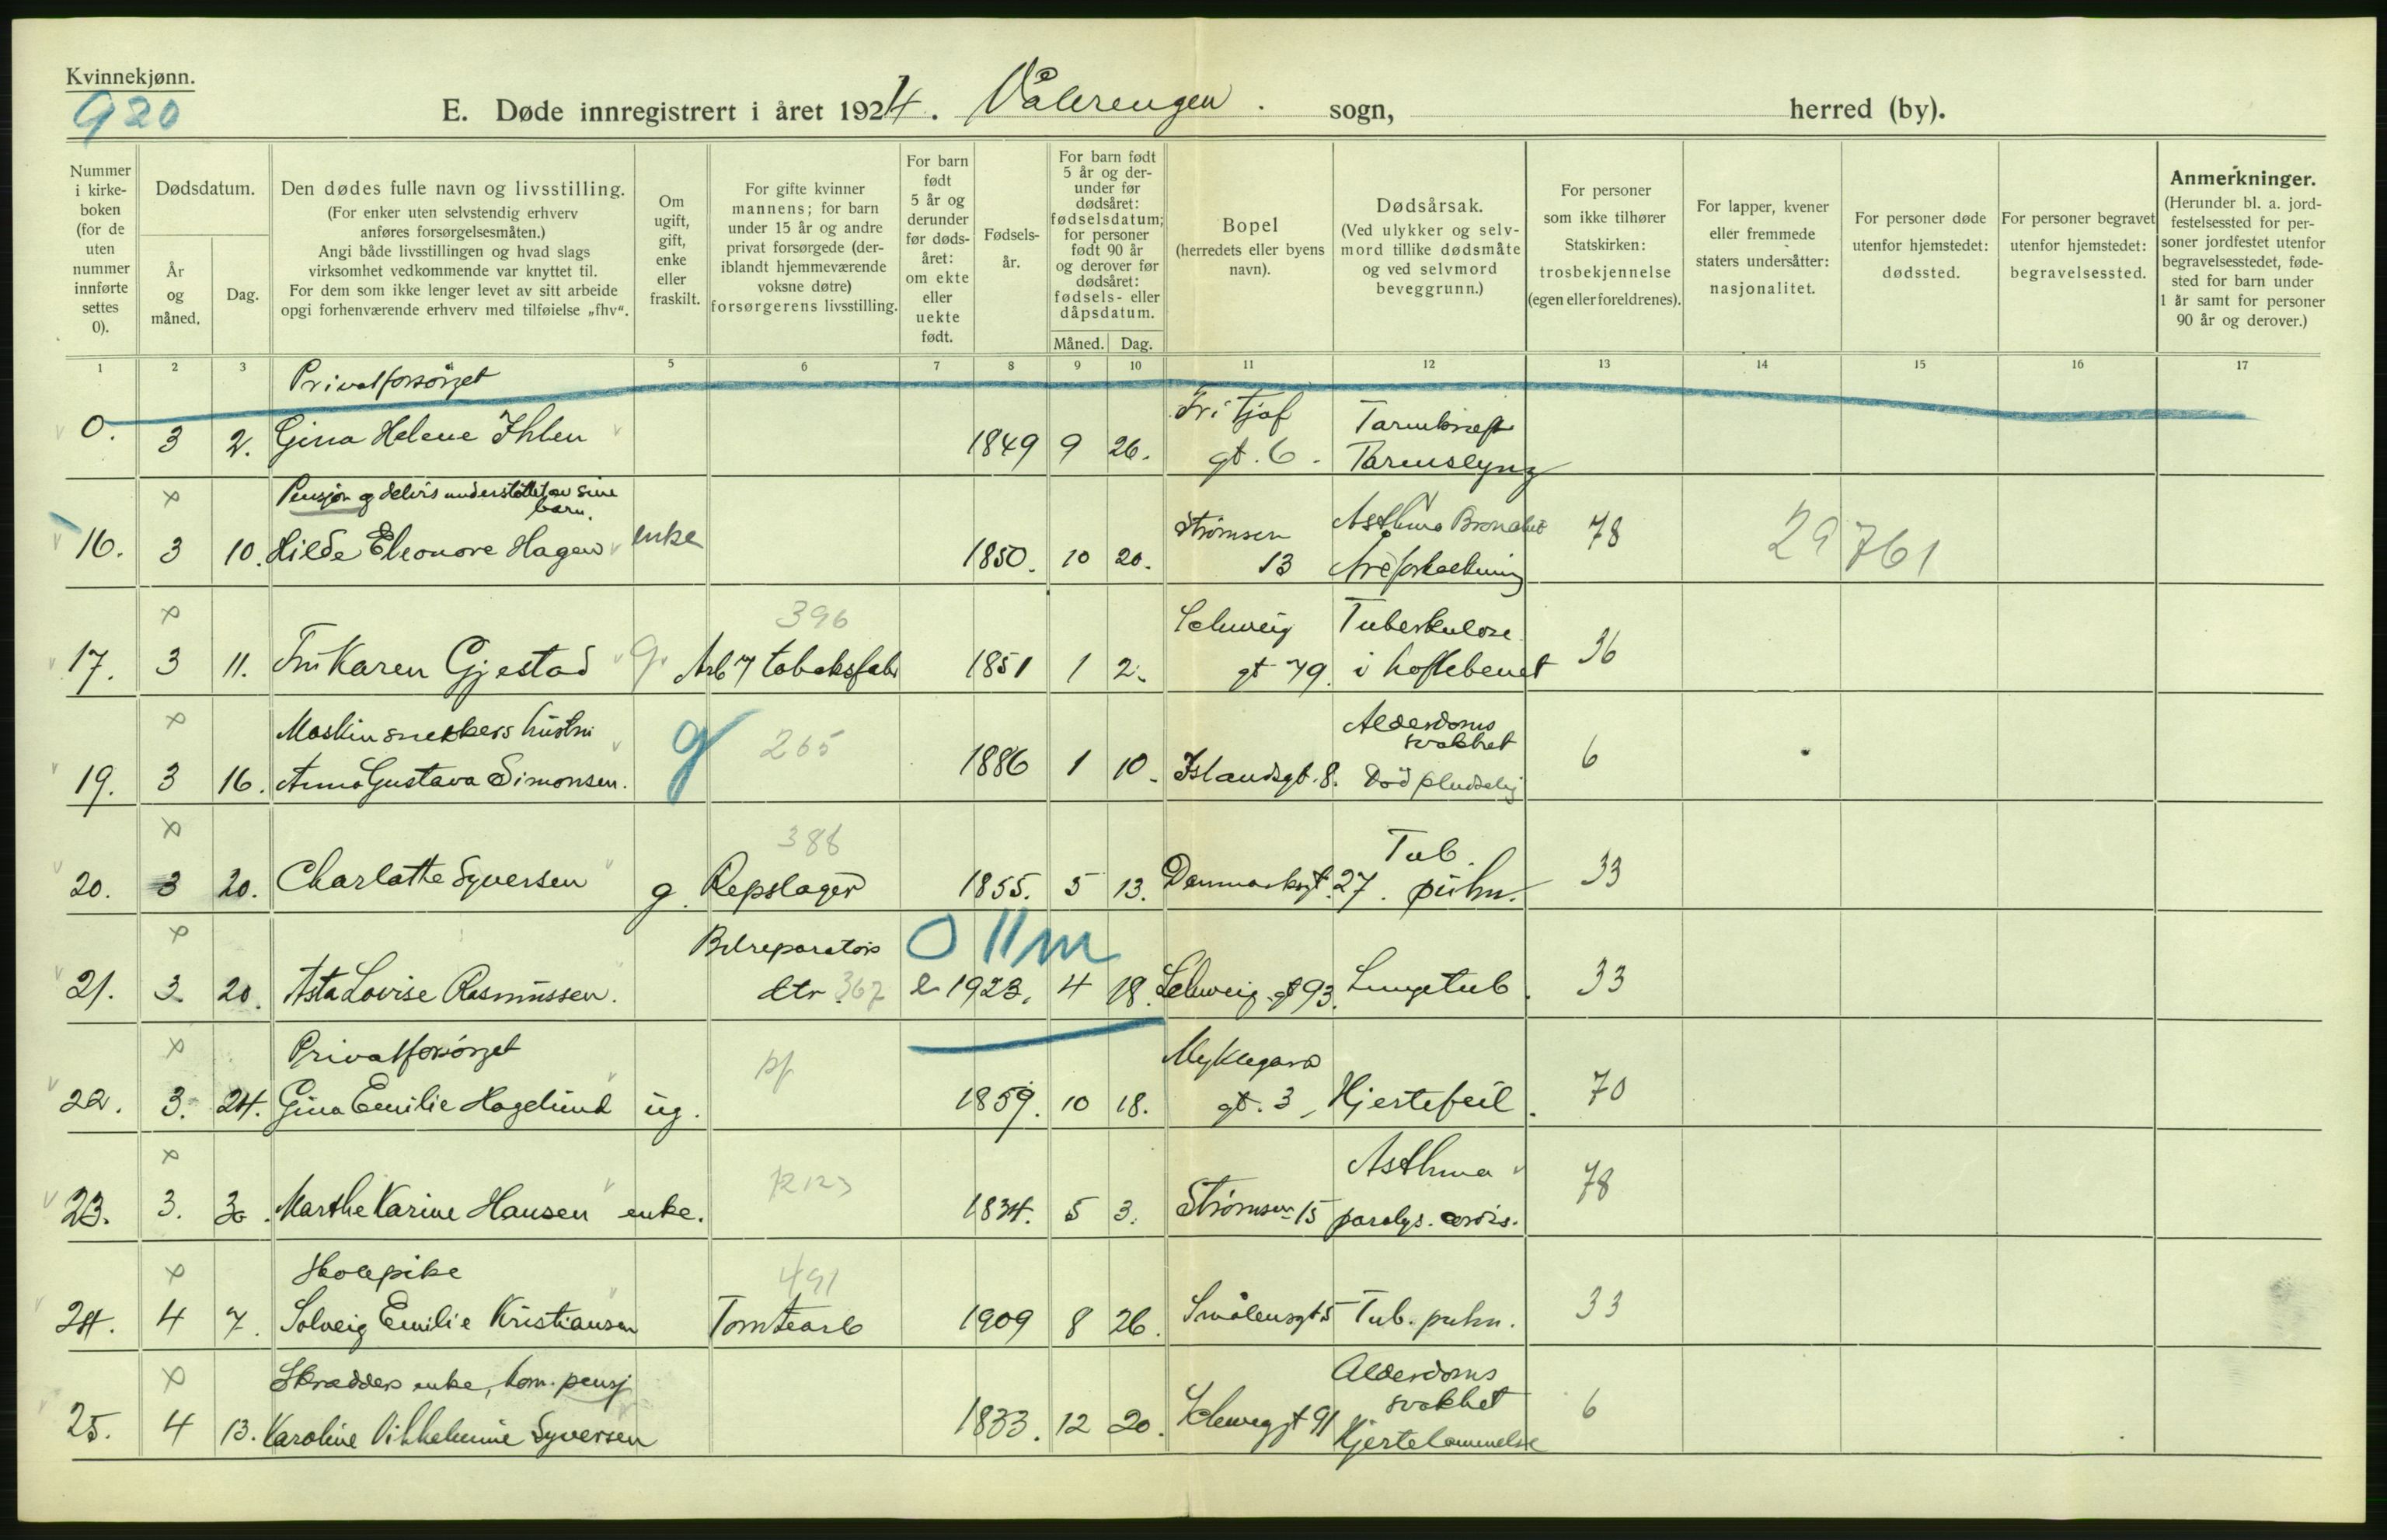 Kvinnekjønn.
920
E. Døde innregistrert i året 1924. Vålerengen. sogn, herred (by).
Nummer i kirke- boken (for de uten nummer innførte settes 0).
Dødsdatum.
År og måned.
Dag.
Den dødes fulle navn og livsstilling.
(For enker uten selvstendig erhverv anføres forsørgelsesmåten.)
Angi både livsstillingen og hvad slags virksomhet vedkommende var knyttet til.
For dem som ikke lenger levet av sitt arbeide opgi forhenværende erhverv med tilføielse „fhv“.
Om ugift, gift, enke eller fraskilt.
For gifte kvinner mannens; for barn under 15 år og andre privat forsørgede (der- iblandt hjemmeværende voksne døtre) forsørgerens livsstilling.
For barn født 5 år og derunder før døds- året: om ekte eller uekte født.
Fødsels- år.
For barn født 5 år og der- under før dødsåret: fødselsdatum; for personer født 90 år og derover før dødsåret: fødsels- eller dåpsdatum.
Måned. Dag.
Bopel
(herredets eller byens navn).
Dødsårsak.
(Ved ulykker og selv- mord tillike dødsmåte og ved selvmord beveggrunn.)
For personer som ikke tilhører Statskirken: trosbekjennelse (egen eller foreldrenes).
For lapper, kvener eller fremmede staters undersåtter: nasjonalitet.
For personer døde utenfor hjemstedet: dødssted.
For personer begravet utenfor hjemstedet: begravelsessted.
Anmerkninger.
(Herunder bl. a. jord- festelsessted for per- soner jordfestet utenfor begravelsesstedet, føde- sted for barn under 1 år samt for personer 90 år og derover.)
1 2 3 5 6 7 8 9 10 11 12 13 14 15 16 17
Privatforsörget Fritjof Tarmkræft
0. 3 2. Gina Helene Ihlen 1849 9 26. gt. 6. Tarmslyng
x Pensjon og delvis understöttet av sine barn. Strømsv Asthma Bronchit
16. 3 10. Hilda Eleonore Hagen enke 1850. 10 20. 13 Åreforkalkning 78 29761
x 396 Schweig Tuberkulose
17. 3 11. Fru Karen Gjestad g. Arb 7 tobaksfabr 1851 1 2. gt 79. i hoftebenet 36
x Maskinsnekkers hustru Alderdoms svakhet
19. 3 16. Anna Gustava Simonsen. g 265 1886 1 10. Islandsgt. 8. Död pludselig 6
x 388 Tub.
20. 3 20. Charlotte Syversen g. Repslager 1855. 5 13. Danmarksgt. 27. pulm. 33
x Bilreparatörs 0 11m
21. 3. 20. Asta Lovise Rasmussen. dtr. 367 e 1923. 4 18. Schweig. gt 93. Lungetub. 33
x Privatforsörget pf. Myklegard
22. 3. 24. Gina Emilie Hagelund ug. 1859. 10 18. gt. 3, Hjertefeil. 70
x Asthma
23. 3. 30. Marthe Karine Hansen enke. 1834. 5 3. Strømsv 15 paralys. cordis. 78
x Skolepike 491
24. 4 7. Solveig Emilie Kristiansen Tomtearb 1909 8 26. Smålensgt 5 Tub. pulm. 33
x Skredders enke, kom. pensj Alderdoms svakhet
25. 4 13. Karoline Vilhelmine Syversen 1833. 12 20. Schweiggt 91 Hjertelammelse 6